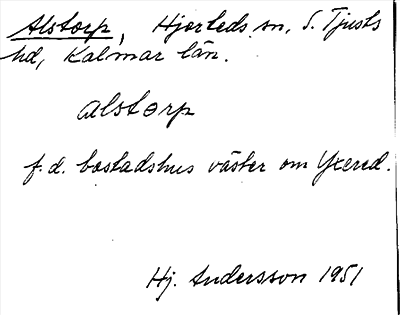 Alstorp, Hjorteds sn, S. Tjusts
hd, Kalmar län.
alstorp
f.d. bostadshus väster om Yxered.
Hj. Andersson 1951